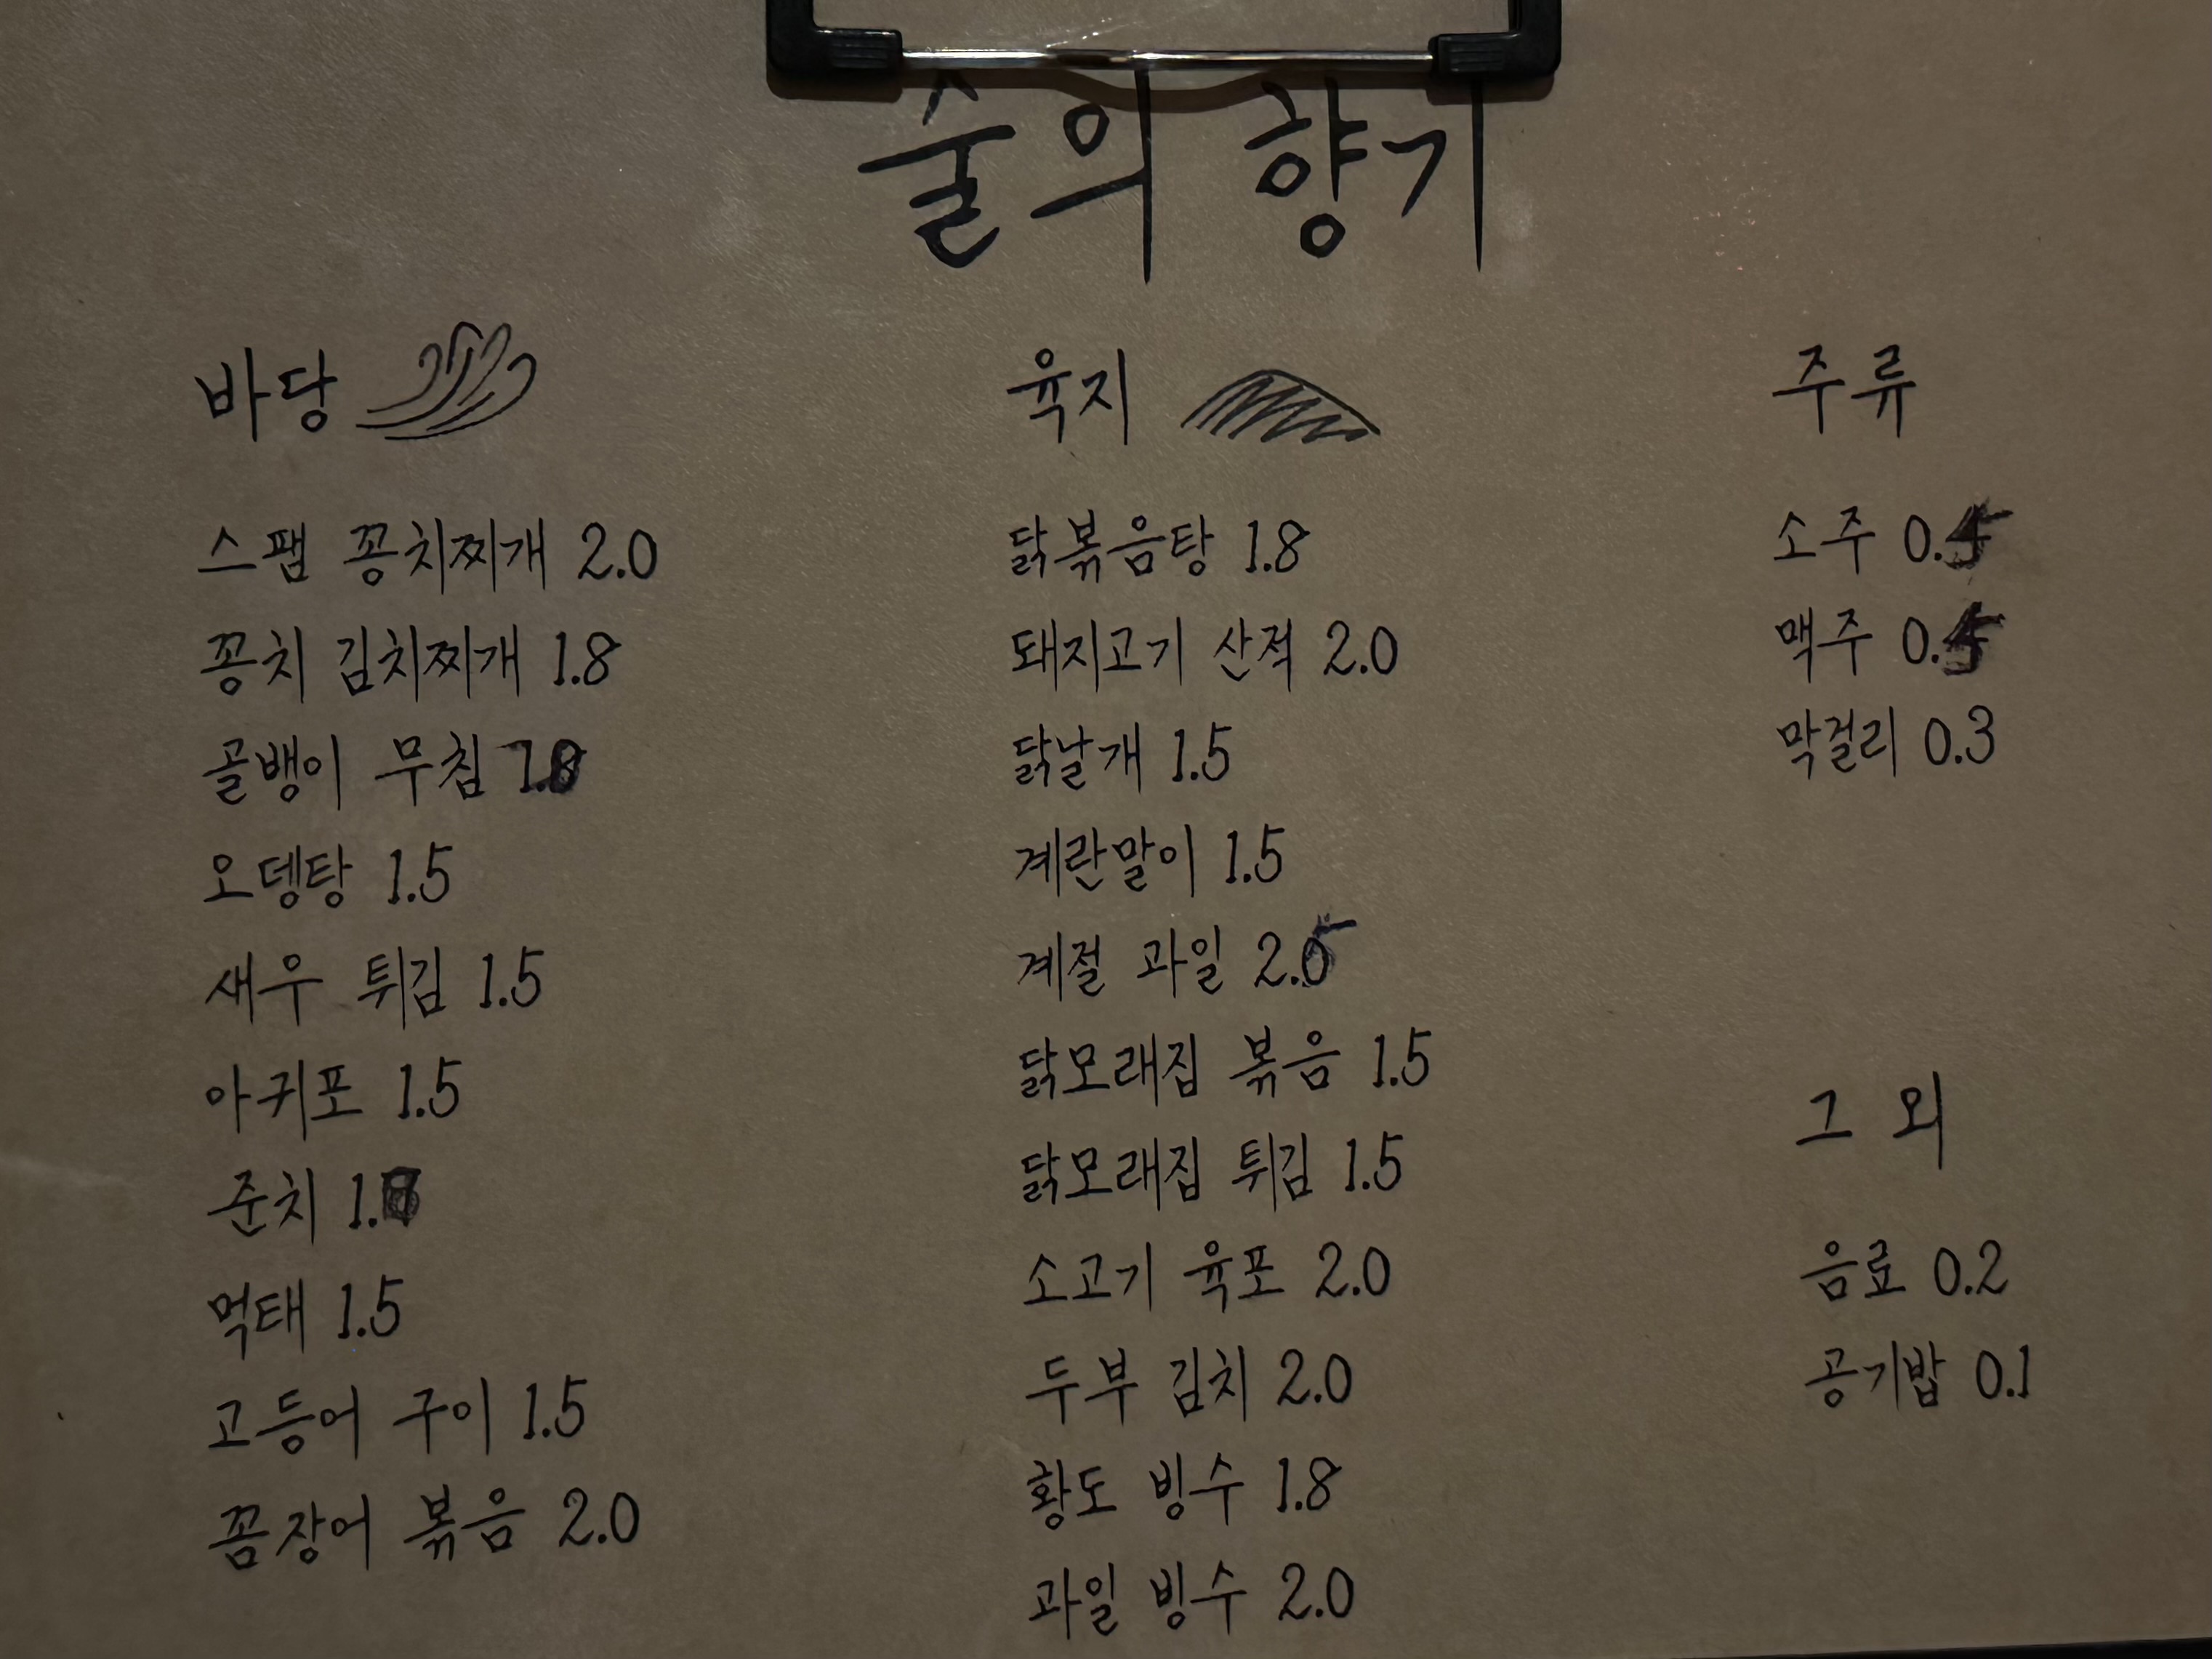 술의 향기
바당
스팸 꽁치찌개 2.0
꽁치 김치찌개 1.8
골뱅이 무침
오뎅탕 1.5
새우 튀김 1.5
아귀포 1.5
준치
먹태 1.5
고등어 구이 1.5
꼼장어 볶음 2.0
육지
닭볶음탕 1.8
돼지고기 산적 2.0
닭날개 1.5
계란말이 1.5
계절 과일 2.5
닭모래집 볶음 1.5
닭모래집 튀김 1.5
소고기 육포 2.0
두부 김치 2.0
황도 빙수 1.8
과일 빙수 2.0
주류
소주 0.5
맥주 0.5
막걸리 0.3
그 외
음료 0.2
공기밥 0.1